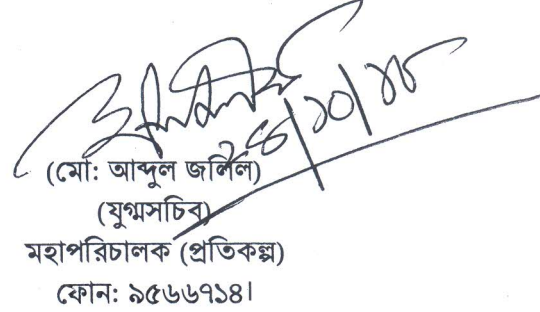 ২৪/১০/১৮
(মো: আব্দুল জলিল)
(যুগ্মসচিব)
মহাপরিচালক (প্রতিকল্প)
ফোন: ৯৫৬৬৭১৪।